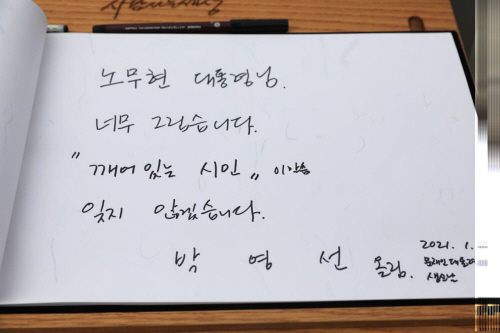 노무현 대통령님.
너무 그립습니다.
"깨어있는 시민" 이 말씀
잊지 않겠습니다.
박 영 선 올림.
2021. 1.
문재인대통령
생신날